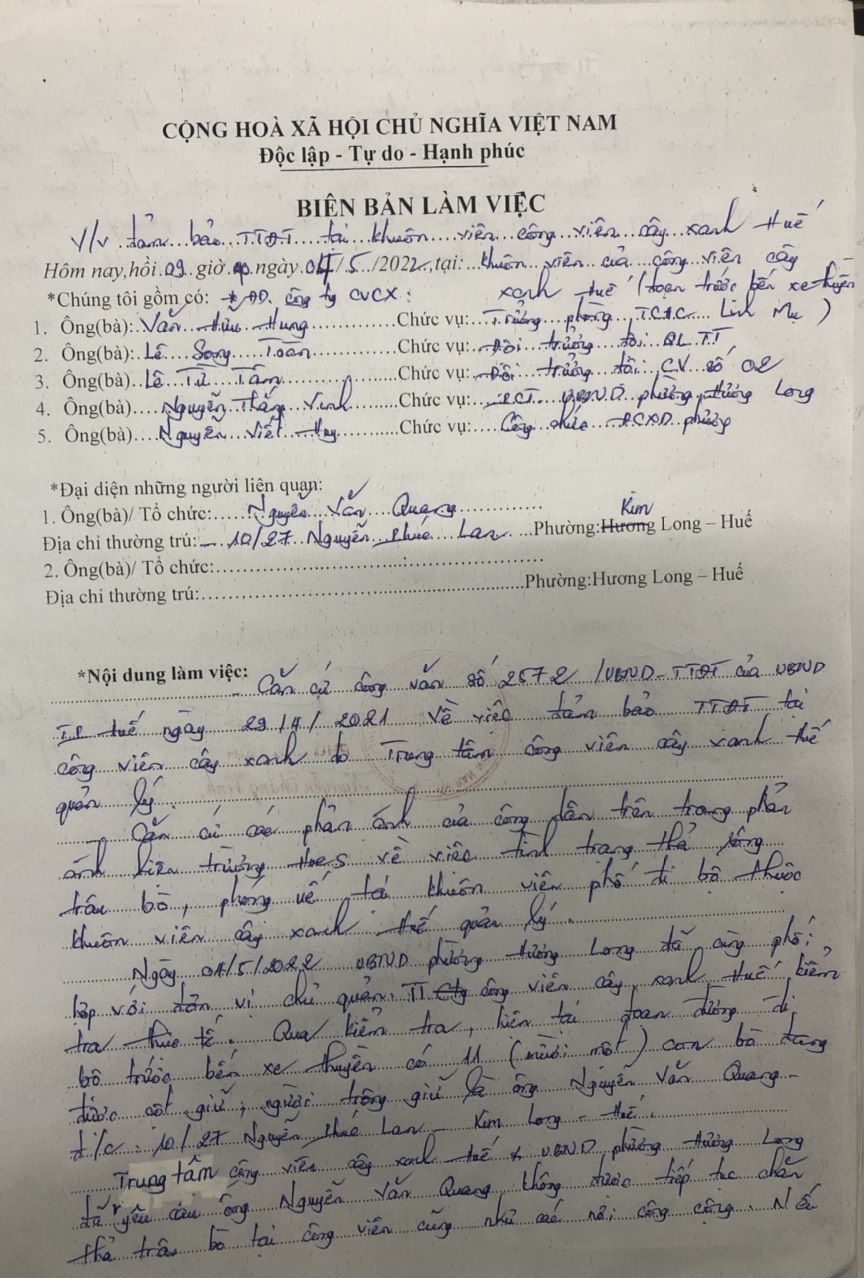 CỘNG HOÀ XÃ HỘI CHỦ NGHĨA VIỆT NAM
Độc lập - Tự do - Hạnh phúc
BIÊN BẢN LÀM VIỆC
V/v đảm bảo TTĐT tại khuôn viên công viên cây xanh Huế
Hôm nay,hồi 09 giờ ngày 04/5/2022,tại: khuôn viên của công viên cây
xanh Huế (đoạn trước bến xe thuyền
*Chúng tôi gồm có: * ĐD. công ty CVCX:
Linh Mụ)
1. Ông(bà): Văn Hữu Hưng Chức vụ: Trưởng phòng T.C.H.C
2. Ông(bà): Lê Song Toàn Chức vụ: Đội trưởng đội QL TT
3. Ông(bà) Lê Từ Tâm Chức vụ: Đội trưởng đội CV số 02
4. Ông(bà) Nguyễn Thắng Vinh Chức vụ: PCT UBND phường Hương Long
5. Ông(bà) Nguyễn Viết Huy Chức vụ: Công chức ĐCXD phường
*Đại diện những người liên quan:
1. Ông(bà)/ Tổ chức: Nguyễn Văn Quang
Kim
Địa chỉ thường trú: 10/27 Nguyễn Phúc Lan Phường:Hương Long – Huế
2. Ông(bà)/ Tổ chức:
Địa chỉ thường trú: Phường:Hương Long – Huế
*Nội dung làm việc: - Căn cứ công văn số 2572 /UBND-TTĐT của UBND
T.P Huế ngày 29/4/2021 Về việc đảm bảo TTĐT tại
công viên cây xanh do Trung tâm công viên cây xanh Huế
quản lý.
- Căn cứ các phản ánh của công dân trên trang phản
ánh hiện trường HueS về việc tình trạng thả rông
trâu bò, phóng uế tại khuôn viên phố đi bộ thuộc
khuôn viên cây xanh Huế quản lý.
Ngày 04/5/2022 UBND phường Hương Long đã cùng phối
hợp với đơn vị chủ quản TT Cty công viên cây xanh Huế kiểm
tra thực tế. Qua kiểm tra, hiện tại đoạn đường đi
bộ trước bến xe thuyền có 11 (mười một) con bò đang
được cột giữ, người trông giữ là ông Nguyễn Văn Quang -
đ/c: 10/27 Nguyễn Phúc Lan - Kim Long - Huế.
Trung tâm công viên cây xanh Huế & UBND phường Hương Long
đã yêu cầu ông Nguyễn Văn Quang không được tiếp tục chăn
thả trâu bò tại công viên cũng như các nơi công cộng. Nếu